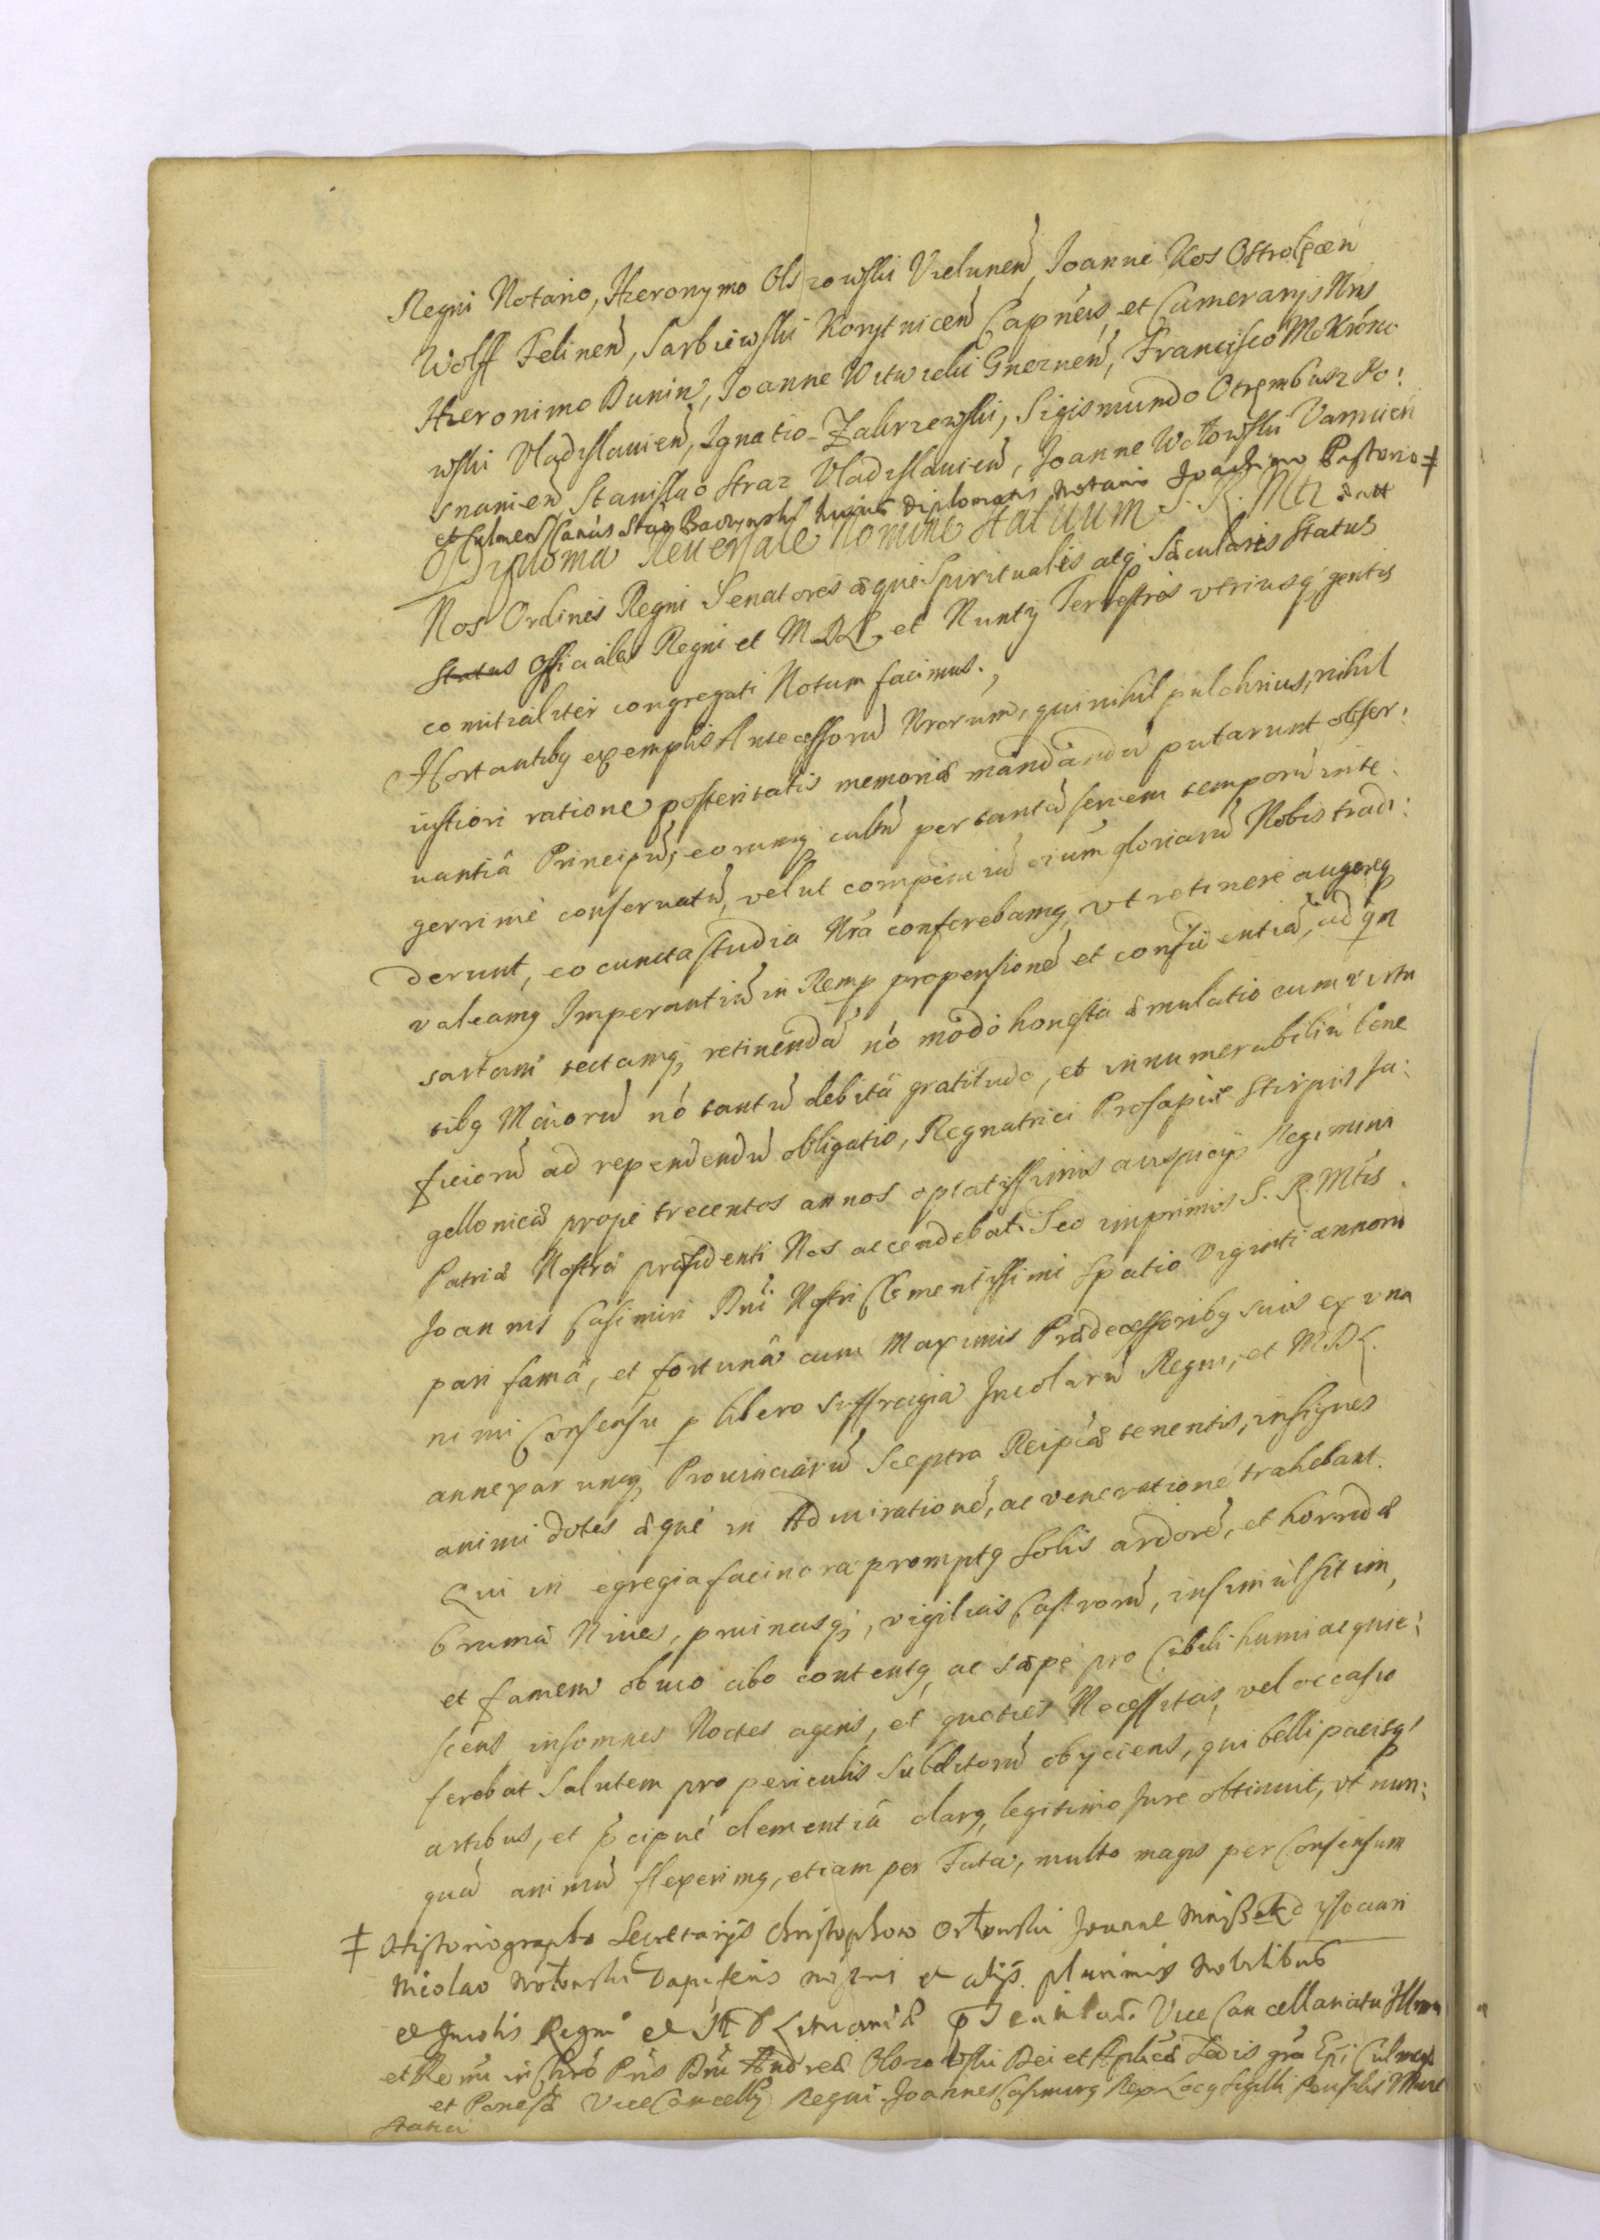 Regni Notario, Hieronymo Olszowski Vielunen, Joanne Kos Ostrołęcen
Wolff Felinen, Sarbiewski Korytnicen Capneis, et Camerarijs Nris
Hieronimo Dunin, Joanne Witwicki Gneznen, Francisco Mokrono
wski Vladislavien, Ignatio Zakrzewski, Sigismundo Otrembusz Po:
snanien, Stanislao Straz Vladislavien, Joanne Wołowski Varmien
et Culmen Cancis Stan Baczynski huius Diplomatis Notario Joachimo Pastorio ‡
Diploma Reversale Nomine Statuum S. R. Mti datt
Nos Ordines Regni Senatores æque Spiritualis atq; Sæcularis Status
Status Officiales Regni et M.D.L. et Nuntij Terrestres vtriusq; gentis
comitialiter congregati Notum facimus.
Hortantibg exemplis Antecessorũ Nrorum, qui nihil pulchrius, nihil
iustiori ratione posteritatis memoriæ mandandũ putarunt obser:
uantiâ Principũ, eorumq; cultũ per tantũ seriem temporũ inte:
gerrimè conseruatũ, velut compendiũ gloriarũ Nobis tradi:
derunt, eo cuncta studia Nra conferebamg, vt retinere augereq
valeamg Imperantiũ in Remp propensionẽ et confidentiã, ad qm
sartam tectamq; retinendã nõ modo honesta æmulatio cum virtu
tibg Maiorũ nõ tantũ debita gratitudo, et innumerabiliũ bene
ficiorũ ad rependendũ obligatio, Regnatrici Prosapiæ Stirpis Ja:
gellonicæ prope trecentos annos optatissimis auspicijs Regimini
Patriæ Nostræ præsidenti Nos accendebat. Sed inprimis S. R. Mtis
Joannis Casimiri Dni Nostri Clementissimi Spatio Viginti annorũ
pari famâ, et fortunâ cum Maximis Prædecessoribg suis ex vna
nimi Consensu p libero suffragia Incolarũ Regni, et M.D.L.
annexarumq; Prouinciarũ Sceptra Reipcæ tenentis, insignes
animi dotes æque in Admirationẽ, ac venerationẽ trahebant.
Qui in egregia facinora promptg Solis ardorẽ, et horridæ
brumæ Niues, pruinasq;, vigilias Castrorũ, insimul sitim,
et famem obuio cibo contentg, ac sæpe pro Cubili humi acquie:
scens insomnes Noctes agens, et quoties Necessitas, vel occasio
ferebat Salutem pro periculis Subditorũ obijciens, qui belli pacisq;
artibus, et pcipuè clementiâ clarg, legitimo Jure obtinuit, vt nun:
quã animũ flexerimg, etiam per Fata, multo magis per Consensum
‡ Historiographo Secretarijs Christophoro Orłowski Joanne
Dapiferis nostris et alijs plurimis Nobilibus
et Incolis Regni et M D Lituaniæ Vice Cancellariatu Illmi
et Rvmi in Chro Pris Dni Andreæ Olszowski Dei et Aplicæ Sedis gra Epi Culmen
et Pomesa Vice Cancellij Regni. Joannes Casimirg Rex Locg Sigilli